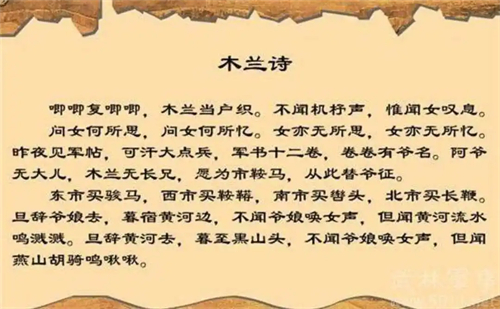 木兰诗
唧唧复唧唧，木兰当户织。不闻机杼声，惟闻女叹息。
问女何所思，问女何所忆。女亦无所思，女亦无所忆。
昨夜见军帖，可汗大点兵，军书十二卷，卷卷有爷名。阿爷
无大儿，木兰无长兄，愿为市鞍马，从此替爷征。
东市买骏马，西市买鞍鞯，南市买辔头，北市买长鞭。
旦辞爷娘去，暮宿黄河边，不闻爷娘唤女声，但闻黄河流水
鸣溅溅。旦辞黄河去，暮至黑山头，不闻爷娘唤女声，但闻
燕山胡骑鸣啾啾。